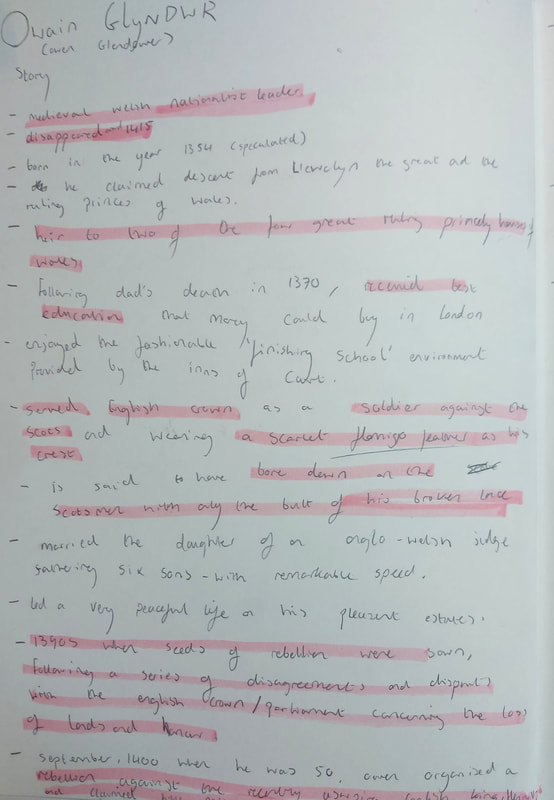 Owain GLYNDWR
(owen Glendower)
Story
- medieval welsh nationalist leader
- disappeared 1415
- born in the year 1354 (speculated)
- he claimed descent from Llewelyn the great and the
ruling princes of wales.
- heir to two of the four great ruling princely houses of
wales
- Following dad's death in 1370, received best
education that money could buy in London
- enjoyed the fashionable 'finishing school' environment
provided by the inns of Court.
- served English crown as a soldier against the
scots and wearing a scarlet flamigo feather as his
crest
- is said to have bore down on the
scotsmen with only the butt of his broken lance
- married the daughter of an anglo-welsh judge
fathering six sons - with remarkable speed.
- led a very peaceful life on his pleasent estates.
- 1390s when seeds of rebellion were sown,
following a series of disagreements and disputs
with the english crown/parliament concerning the loss
of lands and honours
- september, 1400 when he was 50, owen organised a
rebellion against the recently english king
and claimed